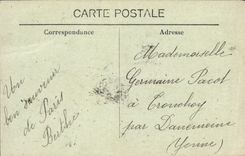 CARTE POSTALE
Correspondance
Adresse
Un
bon souvenir
de Paris
Mademoiselle
Germaine Pacot
à
par
(Yonne)